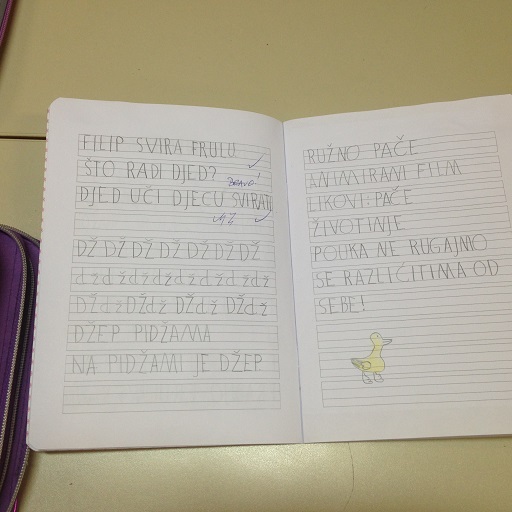 FILIP SVIRA FRULU.
ŠTO RADI DJED?
BRAVO!
DJED UČI DJECU SVIRATI
DŽ DŽ DŽ DŽ DŽ DŽ DŽ
dž dž dž dž dž dž dž dž
DŽ dž DŽ dž DŽ dž DŽ dž
DŽEP PIDŽAMA
NA PIDŽAMI JE DŽEP
RUŽNO PAČE
ANIMIRANI FILM
LIKOVI: PAČE
ŽIVOTINJE
POUKA NE RUGAJMO
SE RAZLIČITIMA OD
SEBE!